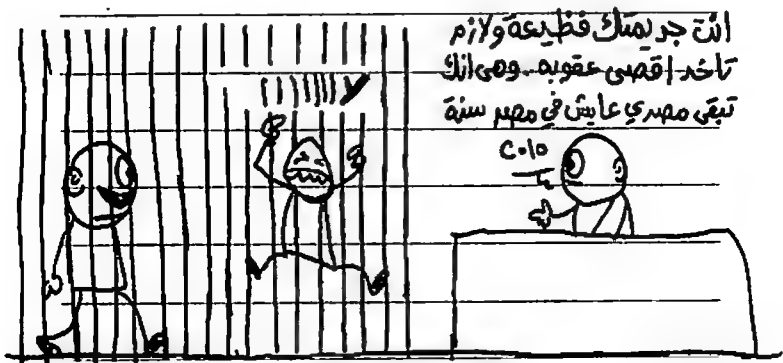 انت جريمتك فظيعة ولازم
تاخد اقصى عقوبه.. وهى انك
تبقى مصري عايش في مصر سنة
٢٠١٥
لااااااا